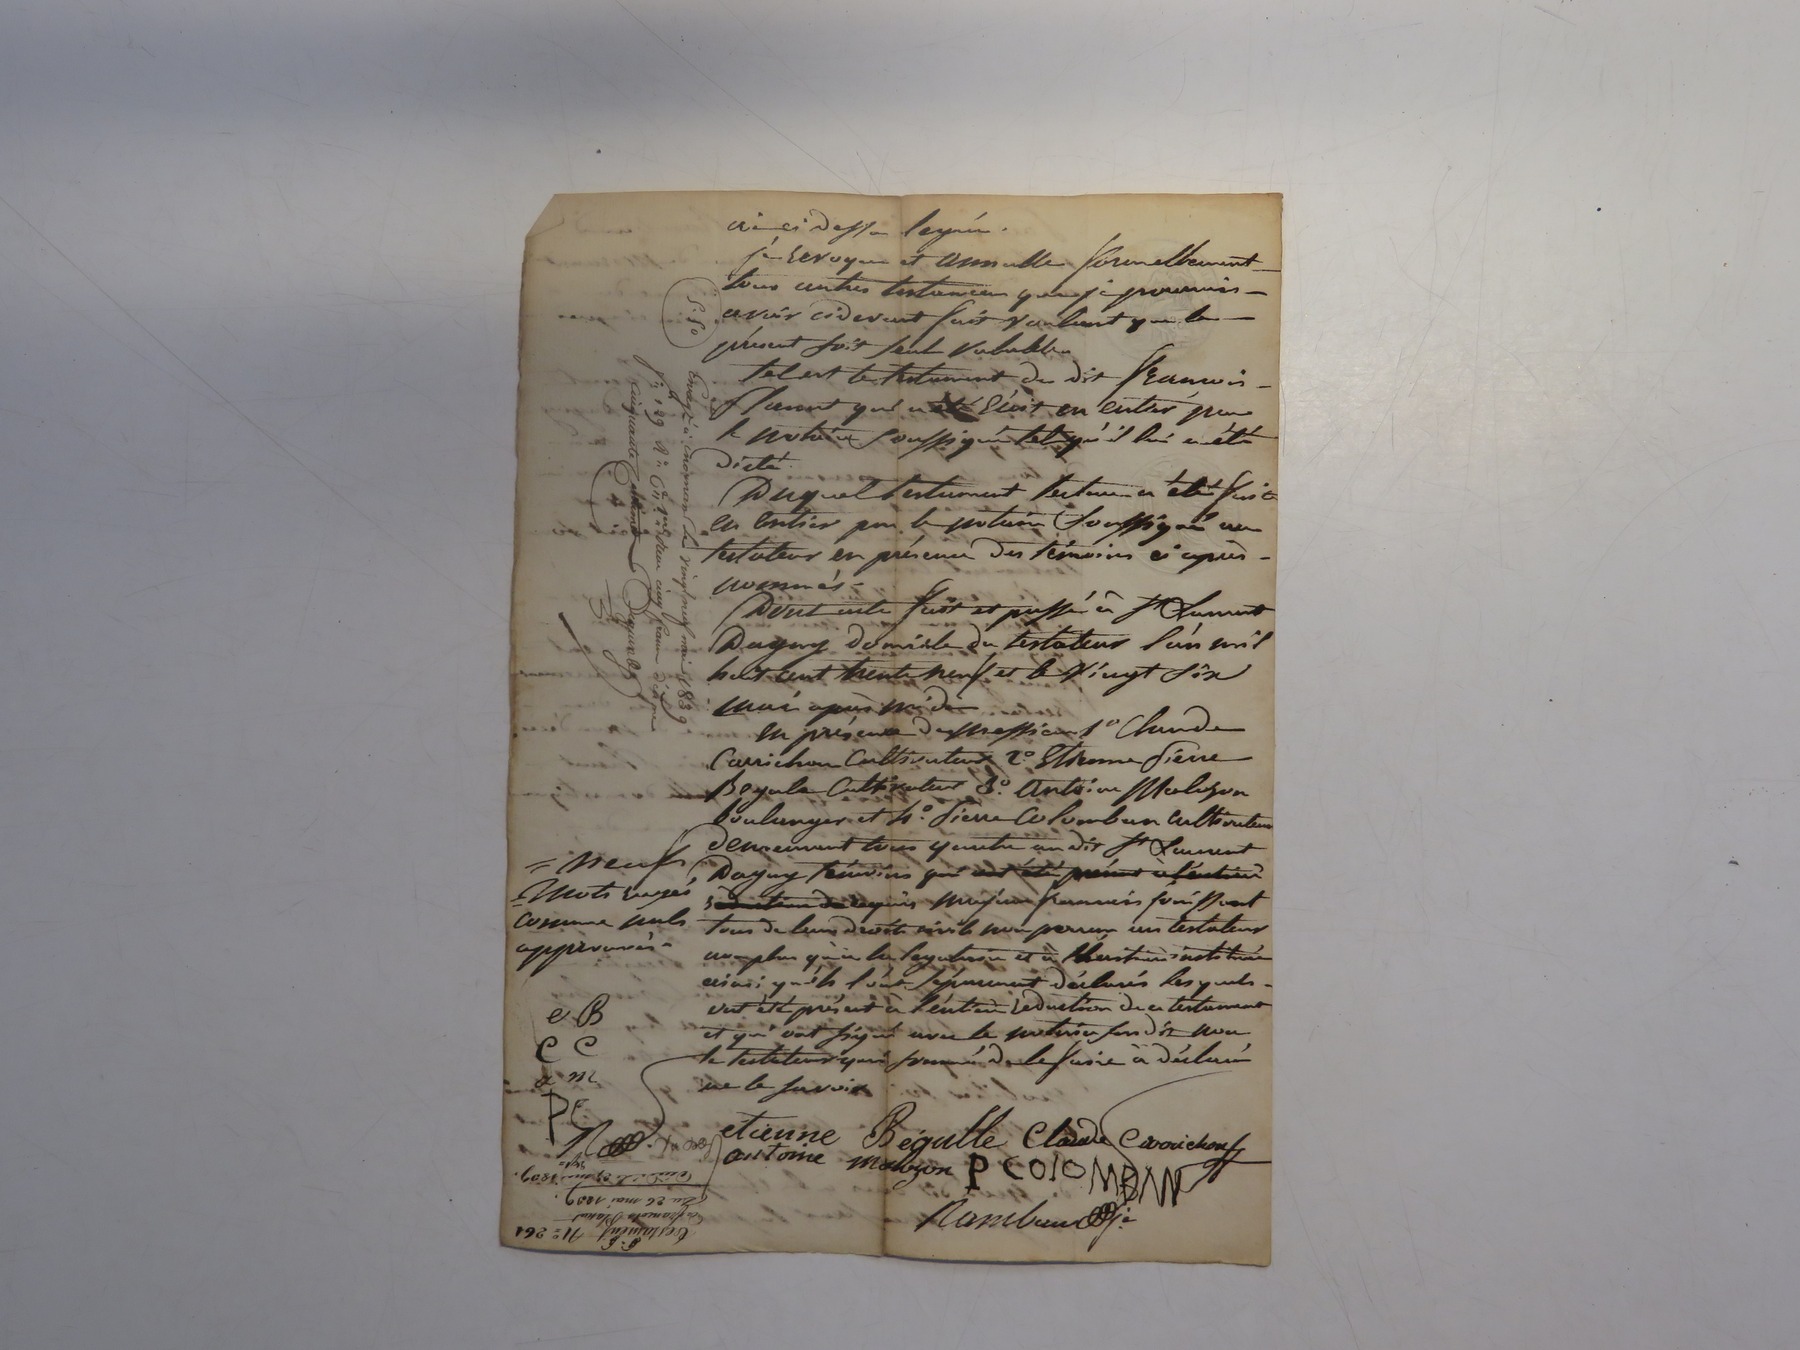 je revoque et annulle formellement
tous autres testamens que je pourrois
avoir cidevant fait voulant que le
présent soit seul valable
tel est le testament du dit françois
Planut qui a été écrit en entier par
le notaire soussigné tel qu'il lui a été
dicté.
Duquel testament lecture a été faite
en entier par le notaire soussigné au
testateur en présence des témoins ci après
nommés
Dont acte fait et passé à St Laurent
Dagny domicile du testateur l'an mil
huit cent trente neuf et le vingt six
mai après midi
en présence de messieurs 1o Claude
Carrichon cultivateur 2o Etienne Pierre
Begule cultivateur 3o antoine Malozon
boulanger et 4o Pierre Colomban cultivateur
demeurant tous quatre au dit St Laurent
Dagny témoins qui ont été présent à l'entière
rédaction de requis majeurs francais jouissant
tous de leurs droits civils non parens au testateur
non plus qu'à la légataire et à l'héritière instituée
ainsi qu'ils l'ont séparement déclarés lesquels
ont été présent à l'entière rédaction de ce testament
et qui ont signé avec le notaire susdit non
le testateur qui sommé de le faire à déclaré
ne le savoir
etienne Bégulle Claude Carrichon
antoine malozon P COLOMBAN
= neuf
mots rayés
comme nuls
approuvés
e B
C C
a m
P C
Enregé à mornant le vingt neuf mai 1839
fo 129
cinquante centimes
No 261
Testament
du 26 mai 1839.